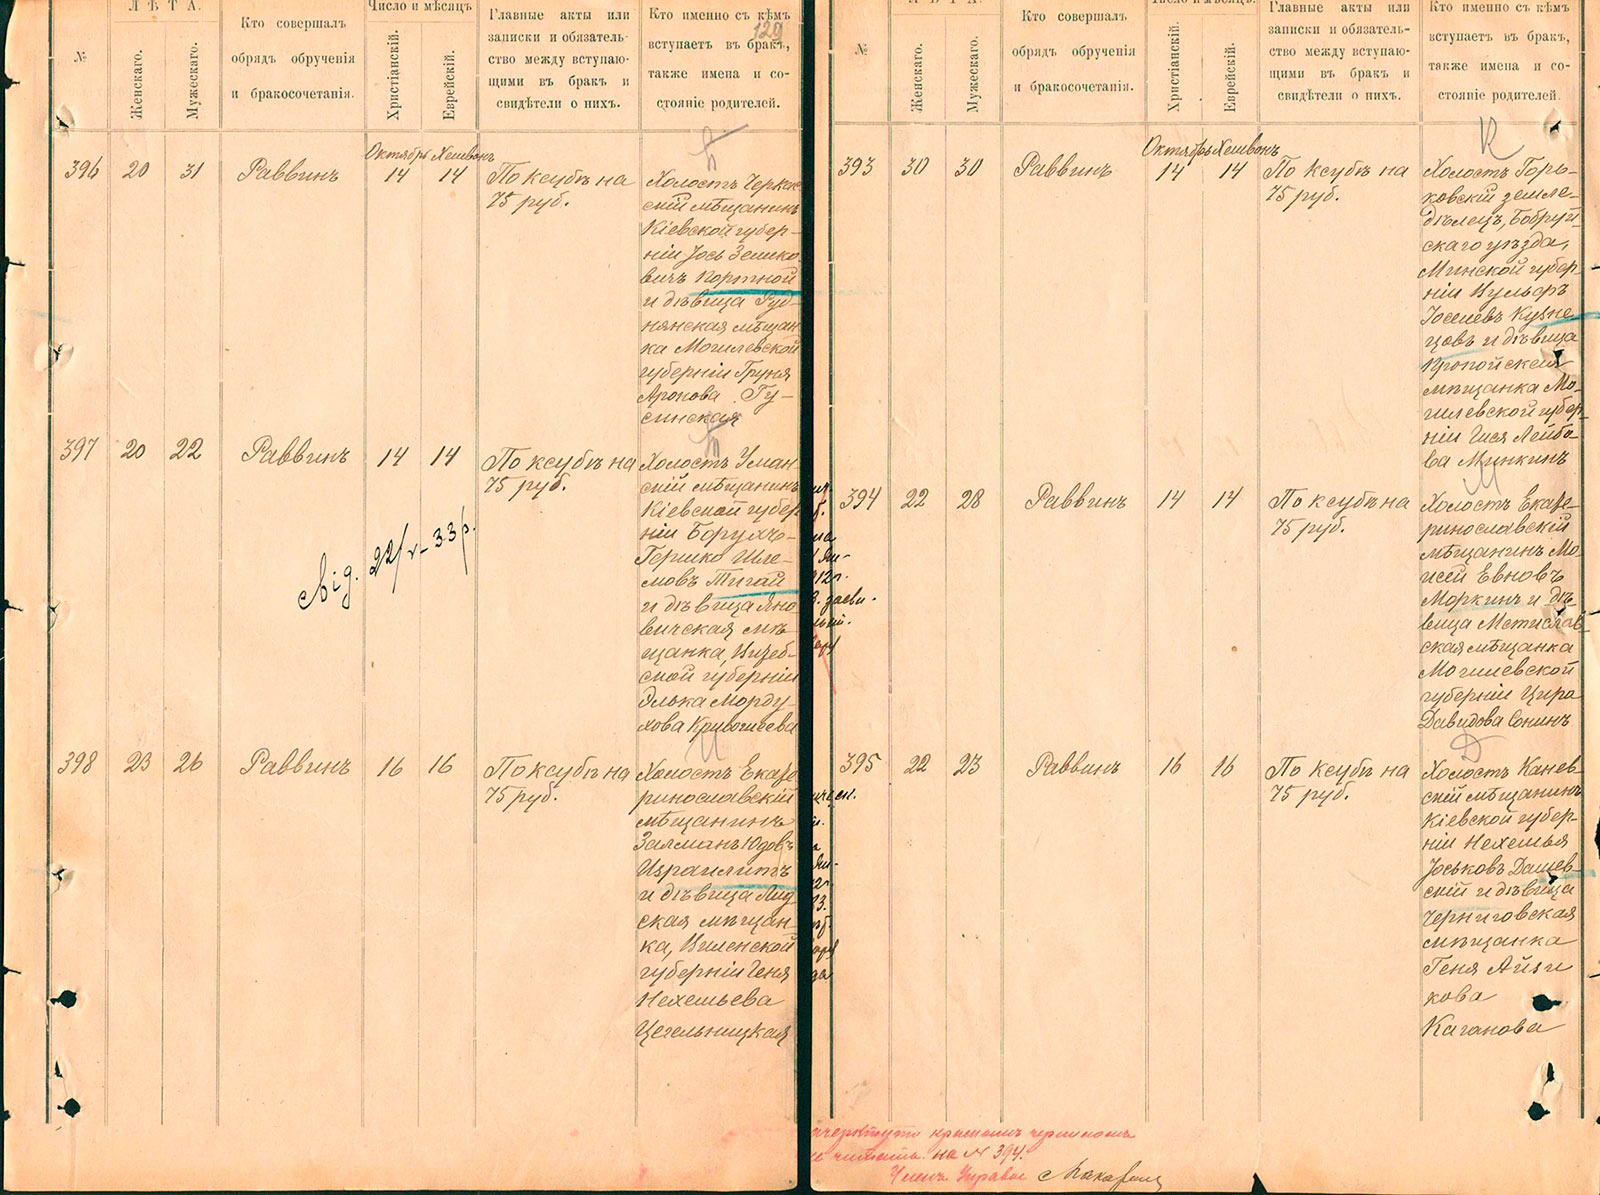 ЛѢТА.
Число и мѣсяцъ
№
Женскаго.
Мужескаго.
Кто совершалъ
обрядъ обрученія
и бракосочетанія.
Христіанскій.
Еврейскій.
Главные акты или
записки и обязатель-
ство между вступаю-
щими въ бракъ и
свидѣтели о нихъ.
Кто именно съ кѣмъ
вступаетъ въ бракъ,
также имена и со-
стояніе родителей.
129
П
Октябрь Хешвонъ
396 20 31 Раввинъ 14 14
По ксубѣ на
75 руб.
Холостъ Черкас
скій мѣщанинъ
Кіевской губер-
ніи Іось Зелико-
вичъ Портной
и дѣвица Руд-
нянская мѣщан
ка Могилевской
губерніи Груня
Аронова Гу-
синская
Т
397 20 22 Раввинъ 14 14
По ксубѣ на
75 руб.
Холостъ Уман-
скій мѣщанинъ
Кіевской губер
ніи Борухъ-
Гершко Шле-
мовъ Тигай
и дѣвица Яно
вичская мѣ-
щанка, Витеб-
ской губерніи
Элька Морду-
хова Кривошеева
свід. 22/v - 33 р.
И
398 23 26 Раввинъ 16 16
По ксубѣ на
75 руб.
Холостъ Екате
ринославскій
мѣщанинъ
Залманъ Юдовъ
Израилитъ
и дѣвица Лид
ская мѣщан-
ка, Виленской
губерніи Геня
Нехемьева
Цегельницкая
ЛѢТА.
Число и мѣсяцъ.
№
Женскаго.
Мужескаго.
Кто совершалъ
обрядъ обрученія
и бракосочетанія.
Христіанскій.
Еврейскій.
Главные акты или
записки и обязатель-
ство между вступаю-
щими въ бракъ и
свидѣтели о нихъ.
Кто именно съ кѣмъ
вступаетъ въ бракъ,
также имена и со-
стояніе родителей.
К
Октябрь Хешвонъ
393 30 30 Раввинъ 14 14
По ксубѣ на
75 руб.
Холостъ Горь-
ковскій земле-
дѣлецъ, Бобруй
скаго уѣзда,
Минской губер
ніи Вульфъ
Іоселевъ Кузне
цовъ и дѣвица
Пропойская
мѣщанка Мо-
гилевской губер-
ніи Лейбо-
ва Минкинъ
М
394 22 28 Раввинъ 14 14
По ксубѣ на
75 руб.
Холостъ Екате-
ринославскій
мѣщанинъ Мо-
исей Евновъ
Моркинъ и дѣ-
вица Мстислав-
ская мѣщанка
Могилевской
губерніи Цира
Давидова Сонинъ
Д
395 22 23 Раввинъ 16 16
По ксубѣ на
75 руб.
Холостъ Канев-
скій мѣщанинъ
Кіевской губер-
ніи Нехемья
Іоськовъ Дашев-
скій и дѣвица
Черниговская
мѣщанка
Геня Айзи
кова
Каганова
краснымъ чернилом
читать на № 394.
Членъ Управы